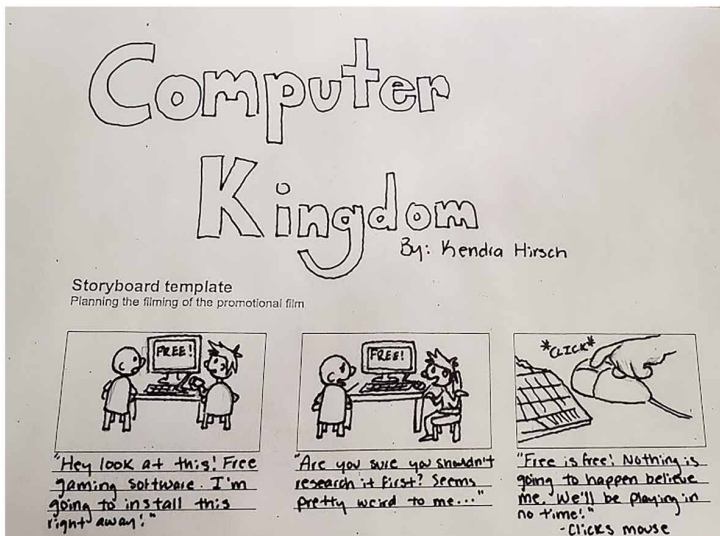 Computer
Kingdom
By: Kendra Hirsch
Storyboard template
Planning the filming of the promotional film
FREE!
FREE!
*CLICK*
"Hey look at this! Free
gaming software. I'm
going to install this
right away!"
"Are you sure you shouldn't
research it first? Seems
pretty weird to me..."
"Free is free! Nothing is
going to happen believe
me. We'll be playing in
no time!"
-Clicks mouse